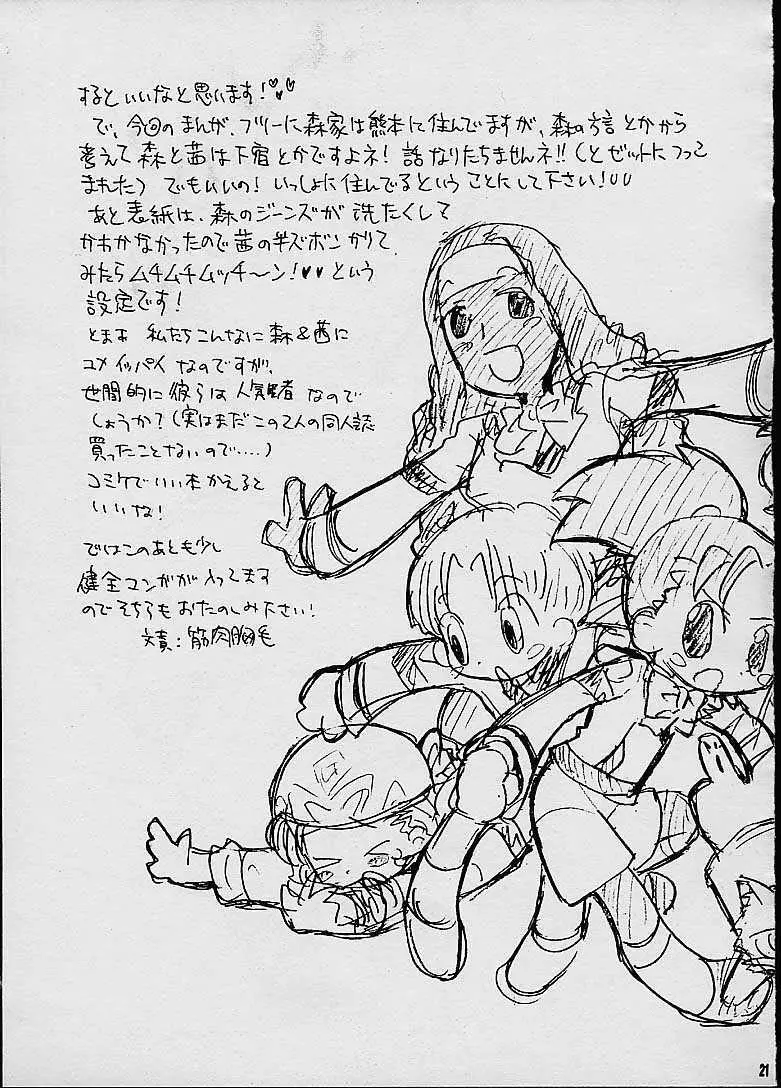 するといいなと思います!♡♡
で、今回のまんが、フツーに森家は熊本に住んでますが、森の方言とかから
考えて森と茜は下宿とかですよネ! 話なりたちませんネ!! (とゼットにつっこ
まれた) でもいいの! いっしょに住んでるということにして下さい!
あと表紙は、森のジーンズが洗たくして
かわかなかったので茜の半ズボンかりて
みたらムチムチムッチ〜ン!♥♥という
設定です!
とまぁ 私たちこんなに森&茜に
ユメイッパイなのですが、
世間的に彼らは人気者なので
しょうか?(実はまだこの2人の同人誌
買ったことないので……)
コミケでいい本かえると
いいな!
ではこのあとも少し
健全マンガが入ってます
のでそちらもおたのしみ下さい!
文責:筋肉胸毛
21